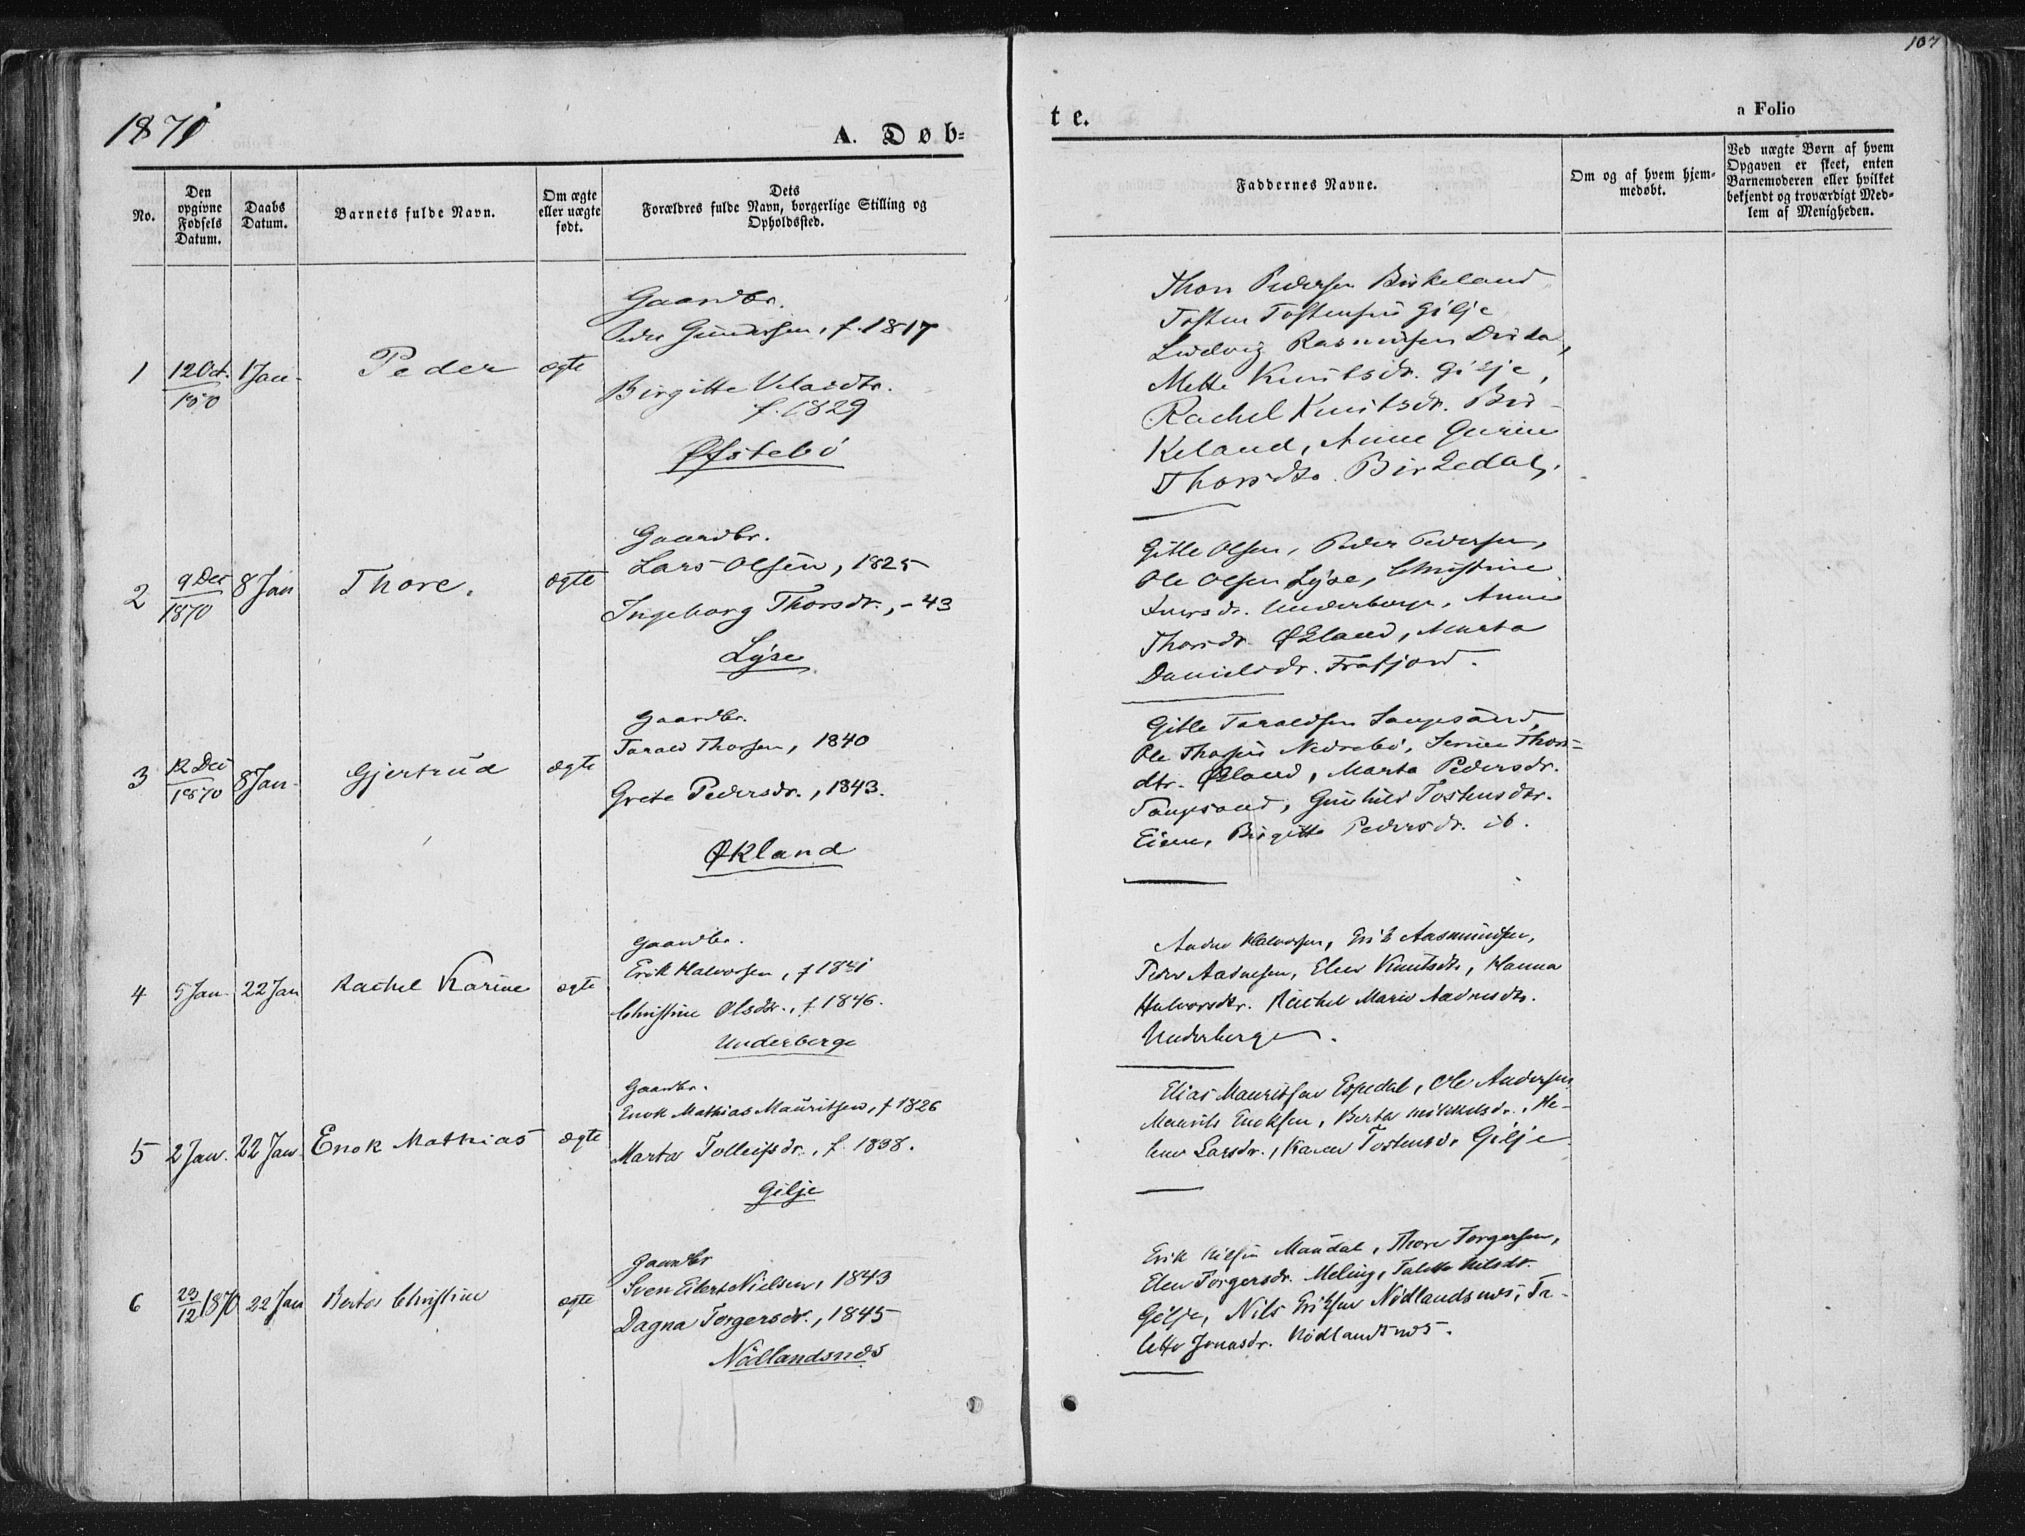 107
1871
A. Døb-
te.
a Folio
No.
Den opgivne Fødsels Datum.
Daabs Datum.
Barnets fulde Navn.
Om ægte eller uægte født.
Dets Forældres fulde Navn, borgerlige Stilling og Opholdssted.
Faddernes Navne.
Om og af hvem hjem-
medøbt.
Ved uægte Børn af hvem
Opgaven er skeet, enten
Barnemoderen eller hvilket
bekjendt og troværdigt Med-
lem af Menigheden.
1
12 Oct.
1 Jan.
Peder
ægte
Gaardbr.
Gundersen, f. 1817
Birgitte Velasdtr.
f. 1829
Øfstebö
Thore Pedersen Birkeland
Tosten Tostensen Gilje
Ludvig Rasmusen Dirdal,
Mette Knutsdr. Gilje,
Rachel Knutsdr. Bir-
keland, Anne Gurine
Thorsdtr. Birkedal.
2
9 Dec
1870
8 Jan
Thore.
ægte
Gaardbr.
Lars Olsen, 1825
Ingeborg Thorsdr., - 43
Lyse
Gitle Olsen, Peder Pedersen,
Ole Olsen Lyse, Christine
Iversdr. Underberge, Anne
Thorsdr. Økland, Marta
Danielsdr. Frafjord.
3
12 Dec
1870
8 Jan.
Gjertrud
ægte
Gaardbr.
Tarald Thorsen, 1840
Grete Pedersdr., 1843.
Økland
Gitle Taraldsen Sangesand,
Ole Thorsen Nedrebö, Serine Thors-
dtr. Økland, Marta Pedersdr.
Sangesand, Gunhild Tostensdtr.
Eiene, Birgitte Pedersdr. ib.
4
5 Jan.
22 Jan
Rachel Karine
ægte
Gaardbr.
Erik Halvorsen, f 1841
Christine Olsdtr., f. 1846.
Underberge
Halvorsen, Erik Aasmundsen,
Peder Aadnesen, Elen Knutsdtr, Hanna
Halvorsdtr. Rachel Marie Aadnesdtr.
Underberge.
5
2 Jan.
22 Jan.
Enok Mathias
ægte
Gaardbr.
Enok Mathias Mauritsen, f 1826
Marta Tolleifsdr., f. 1838.
Gilje
Elias Mauritsen Espedal, Ole Andersen
Maurits Enoksen, Berta Mikkelsdr., He-
lene Larsdr., Karen Tostensdr Gilje
6
23
12 1870
22 Jan
Berta Christine
ægte
Gaardbr
Sven Elbert Nielsen, 1843
Dagna Torgersdr., 1845
Nödlandsnæs
Erik Nilsen Maudal, Thore Torgersen,
Elen Torgersdr. Meling, Talette Nilsdr.
Gilje, Nils Eriksen Nödlandsnæs, Ta-
lette Jonasdr. Nödlandsnæs.